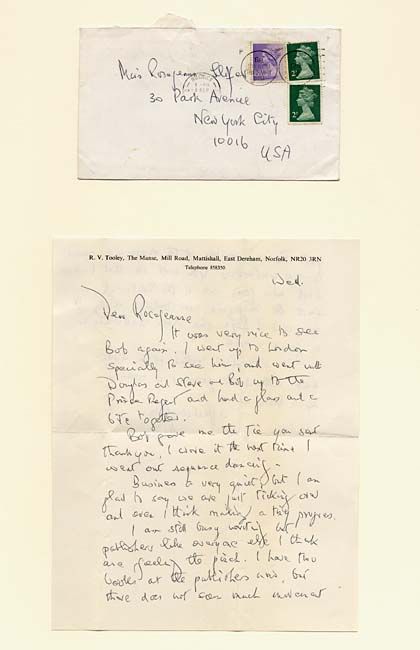 Miss Rosejeanne Slifer
30 Park Avenue
New York City
10016
USA
R. V. Tooley, The Manse, Mill Road, Mattishall, East Dereham, Norfolk, NR20 3RN
Telephone 858350
Wed.
Dear Rosejeanne
It was very nice to see
Bob again. I went up to London
specially to see him, and went with
Douglas and Steve and Bob up to the
Prince Regent and had a glass and a
bite together.
Bob gave me the tie you sent
thank you, I wore it the next time I
went out sequence dancing.
Business is very quiet, but I am
glad to say we are just ticking over
and even I think making a tiny progress.
I am still busy writing but
publishers like everyone else I think
are feeling the pinch. I have two
books at the publishers now, but
there does not seem much movement